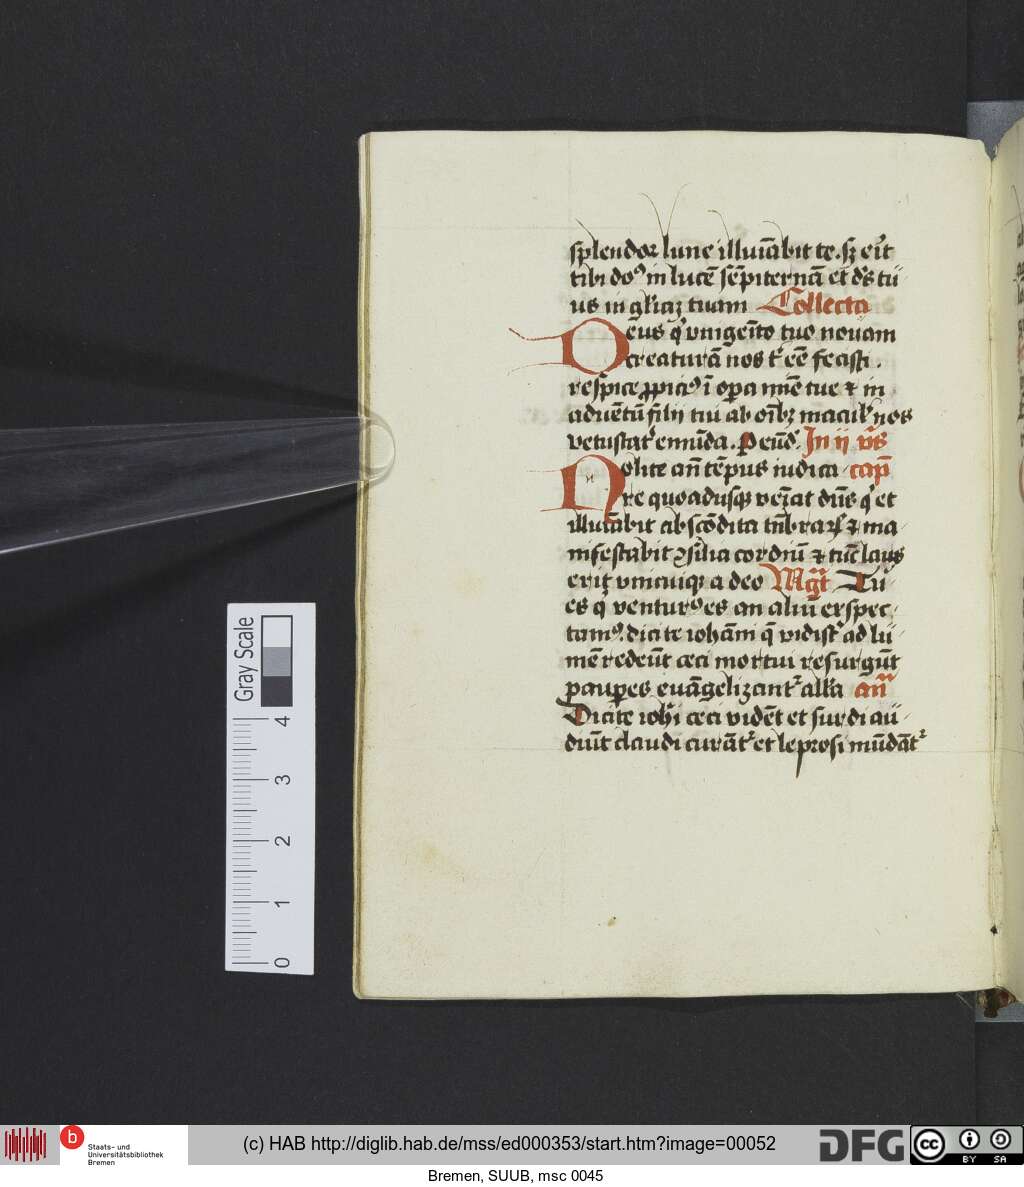 splendor lune illuiābit te. sꝫ eit̄
tibi doꝰ in lucē sēpiternā et ds̄ tu
us in gl̄iaꝫ tuam Collecta
Deus q̇ vnigeīto tuo nouam
creaturā nos tͥ eē fecisti.
respice ꝓpiciꝰ ī opa mīe tue ⁊ in
aduētū filij tui ab oībꝫ maculꝭ nos
vetustatꝭ emūda. P eūd. In ij vs̄
Nolite an̄ tēpus iudica cap̄
re quoadusqꝫ veīat dn̄s q̇ et
illuīabit abscōdita tn̄brarꝝ ⁊ ma
nifestabit ꝯsilia cordiū ⁊ tūc laus
erit vnicuiqꝫ a deo Mgt̄ Tu
es q̇ venturꝰ es an aliū exspec
tamꝰ. dicite iohāni q̄ vidistꝭ ad lu
mē redeūt ceci mortui resurgūt
paup̄es euāgelizant᷑ all̓a an̄
Dicite ioh̄i ceci vidēt et surdi au
diūt claudi curāt᷑ et leprosi mūdāt᷑
Gray Scale
4
3
2
1
0
b Staats- und
Universitätsbibliothek
Bremen
(c) HAB http://diglib.hab.de/mss/ed000353/start.htm?image=00052
DFG
cc BY SA
Bremen, SUUB, msc 0045